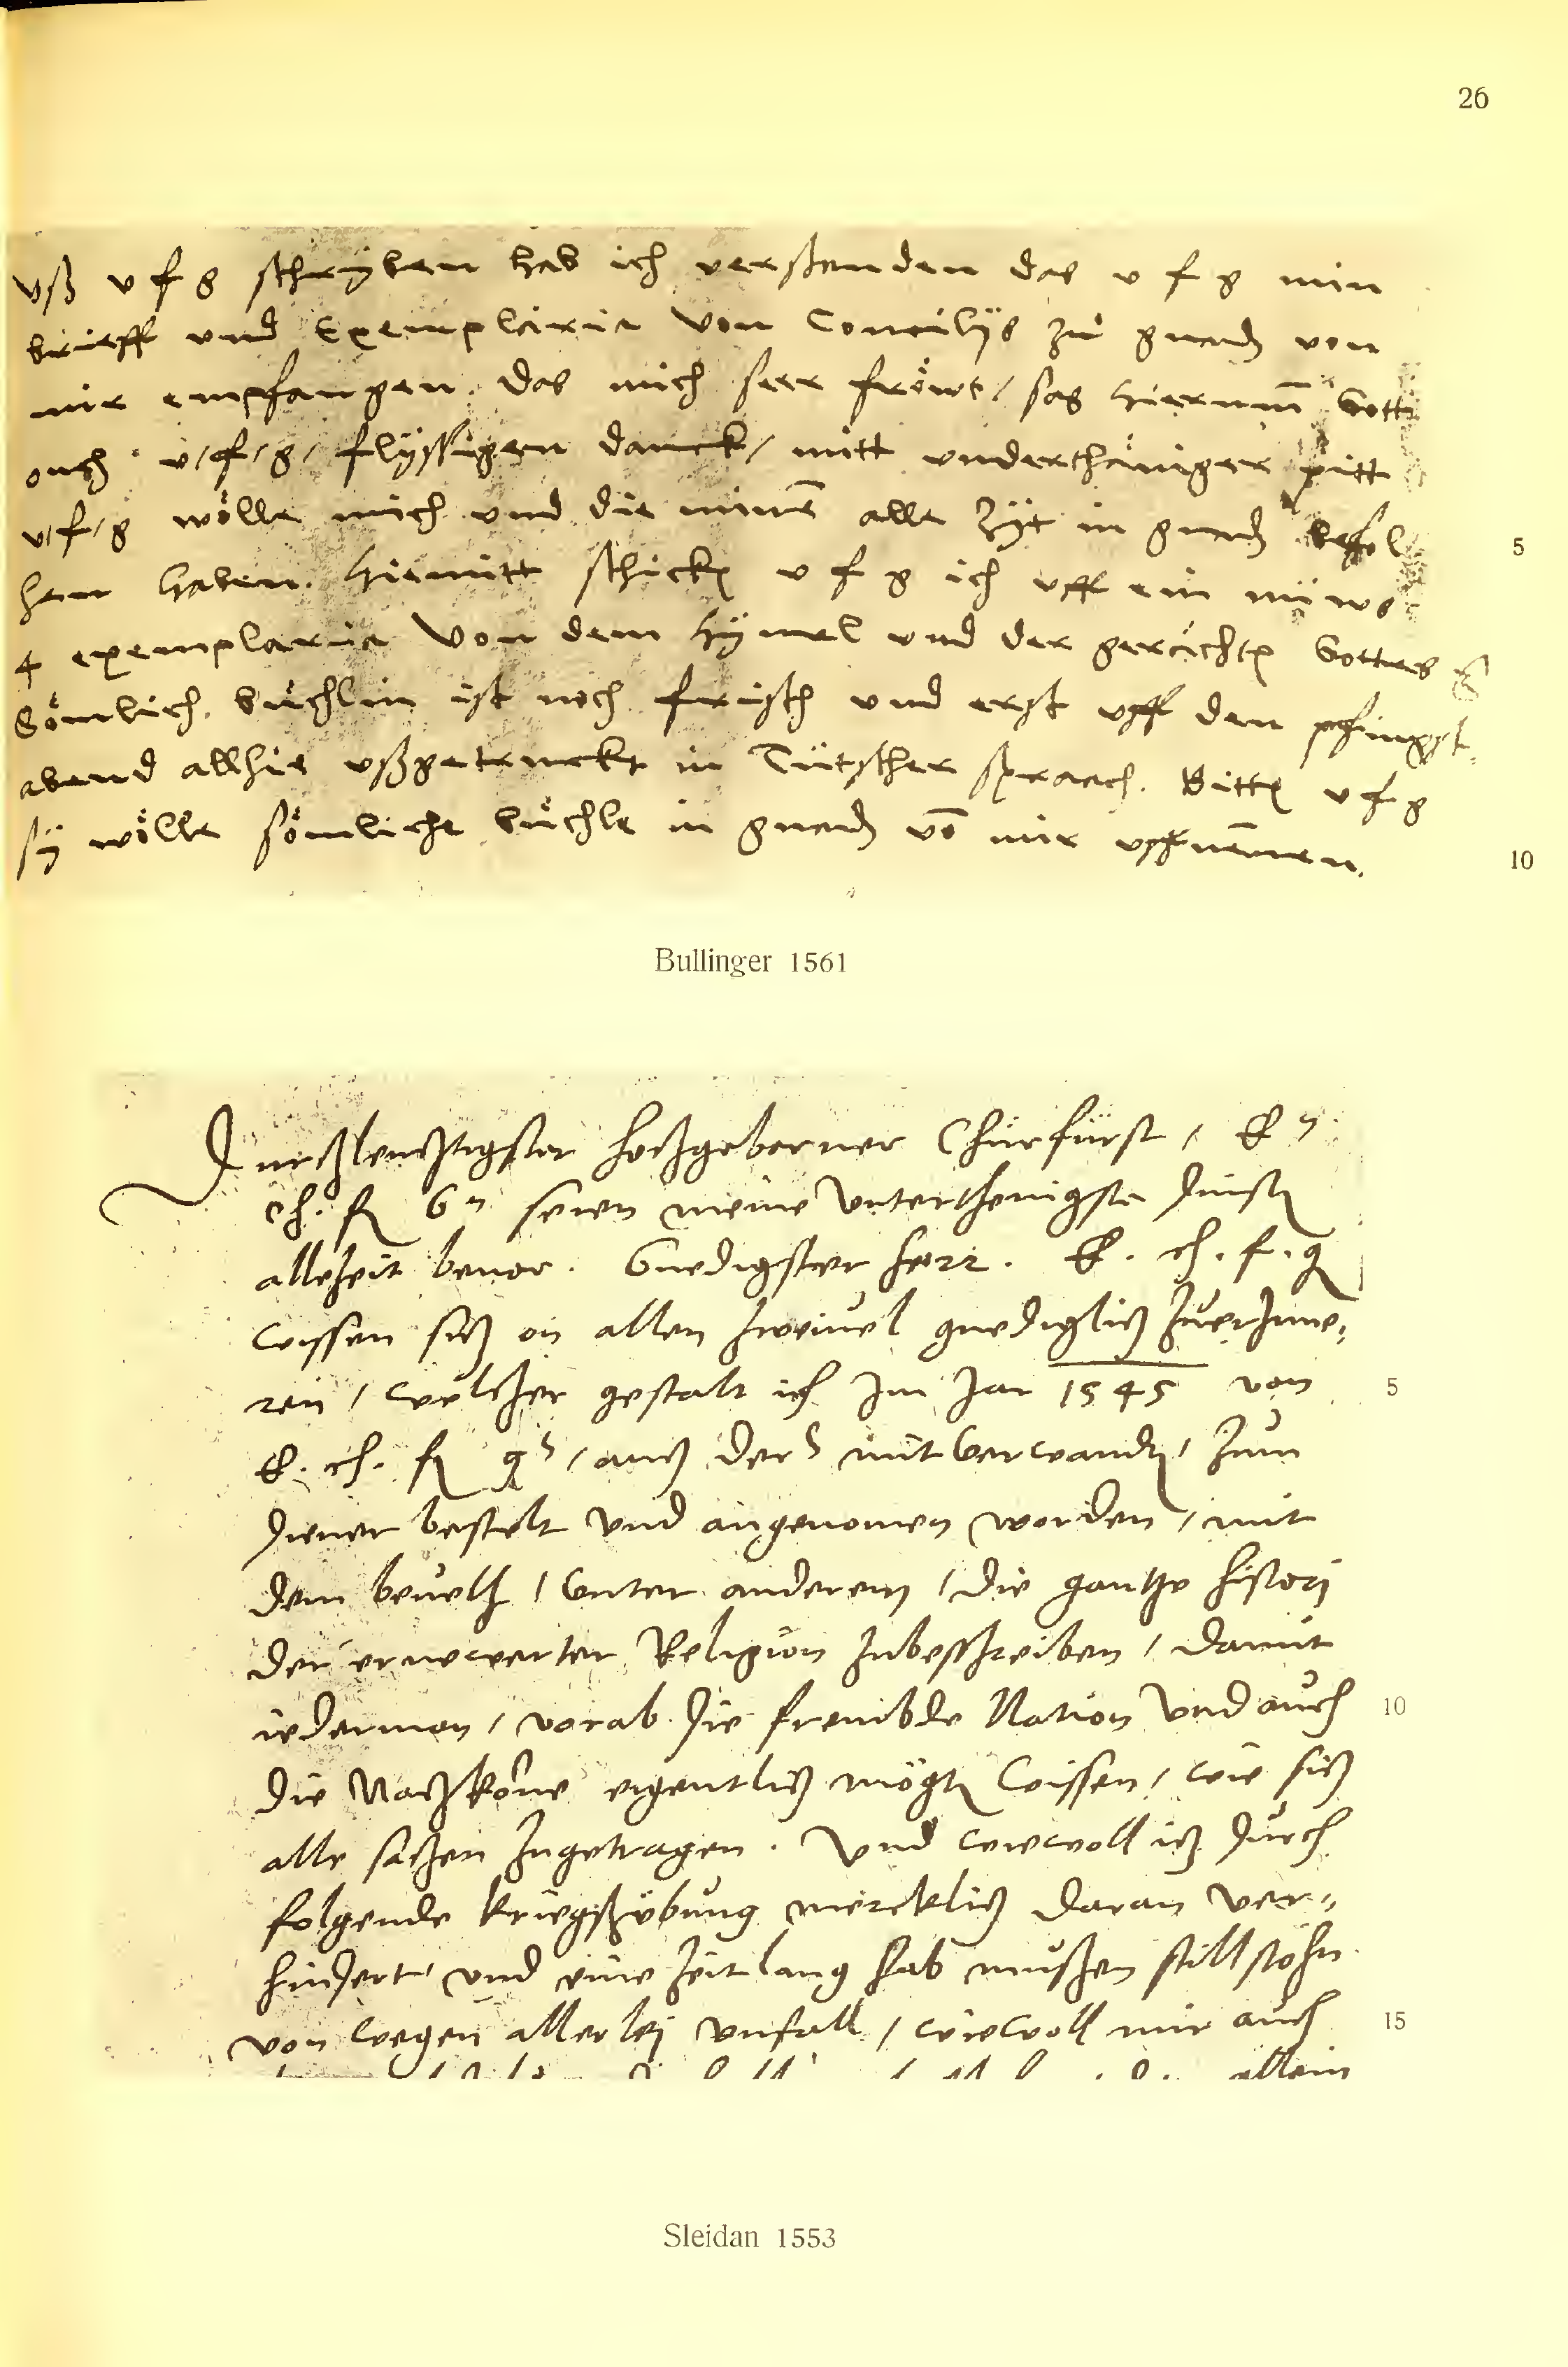 26
vß v f g schryben hab ich verstanden das v f g min
brieff vnd Exemplaria Von Concilijs zů gnadē von
mir empfangen. das mich seer fröwt / sag hierumm̄ Gott
ouch v/f/g/ flyssigen danck / mitt vnderthäniger pitt
v/f/g wölle mich vnd die minē alle zÿt in gnadē befol
5
hen haben. hiemitt schickē v f g ich vff ein nüws
4 exemplaria Von dem hÿmel vnd der gerächtē Gottes
Sömlich büchlin ist noch frisch vnd erst vff den pfingst
abend allhie vßgetruckt in Tütscher spraach. Bittē v f g
sÿ wölle sömliche büchle in gnadē vō mir vffnem̄en.
10
Bullinger 1561
Durchleuchtigster hochgeborner Churfürst / E n
ch. f. G n seien meine vnterthenigste dinste
allezeit beuor. Gnedigster herr. E. ch. f. g
wissen sich on allen zweiuel gnediglich zuerInne⸗
ren / welcher gestalt ich Im Jar 1545 von
5
E. ch. f. g / auch der mitverwandten / zum
diener bestelt vnd angenomen worden / mit
dem beuelh / vnter anderem / die gantze histori
der ernewerter Religion zubeschreiben / damit
iederman / vorab die frembde Nation vnd auch
10
die Nachkōne eigentlich mögen wissen / wie sich
alle sachen zugetragen. Vnd wiewoll ich durch
folgende kriegßübung mercklich daran ver⸗
hindert vnd eine zeit lang hab mußen still stohn
von wegen allerlej vnfall / wiewoll mir auch
15
allein
Sleidan 1553